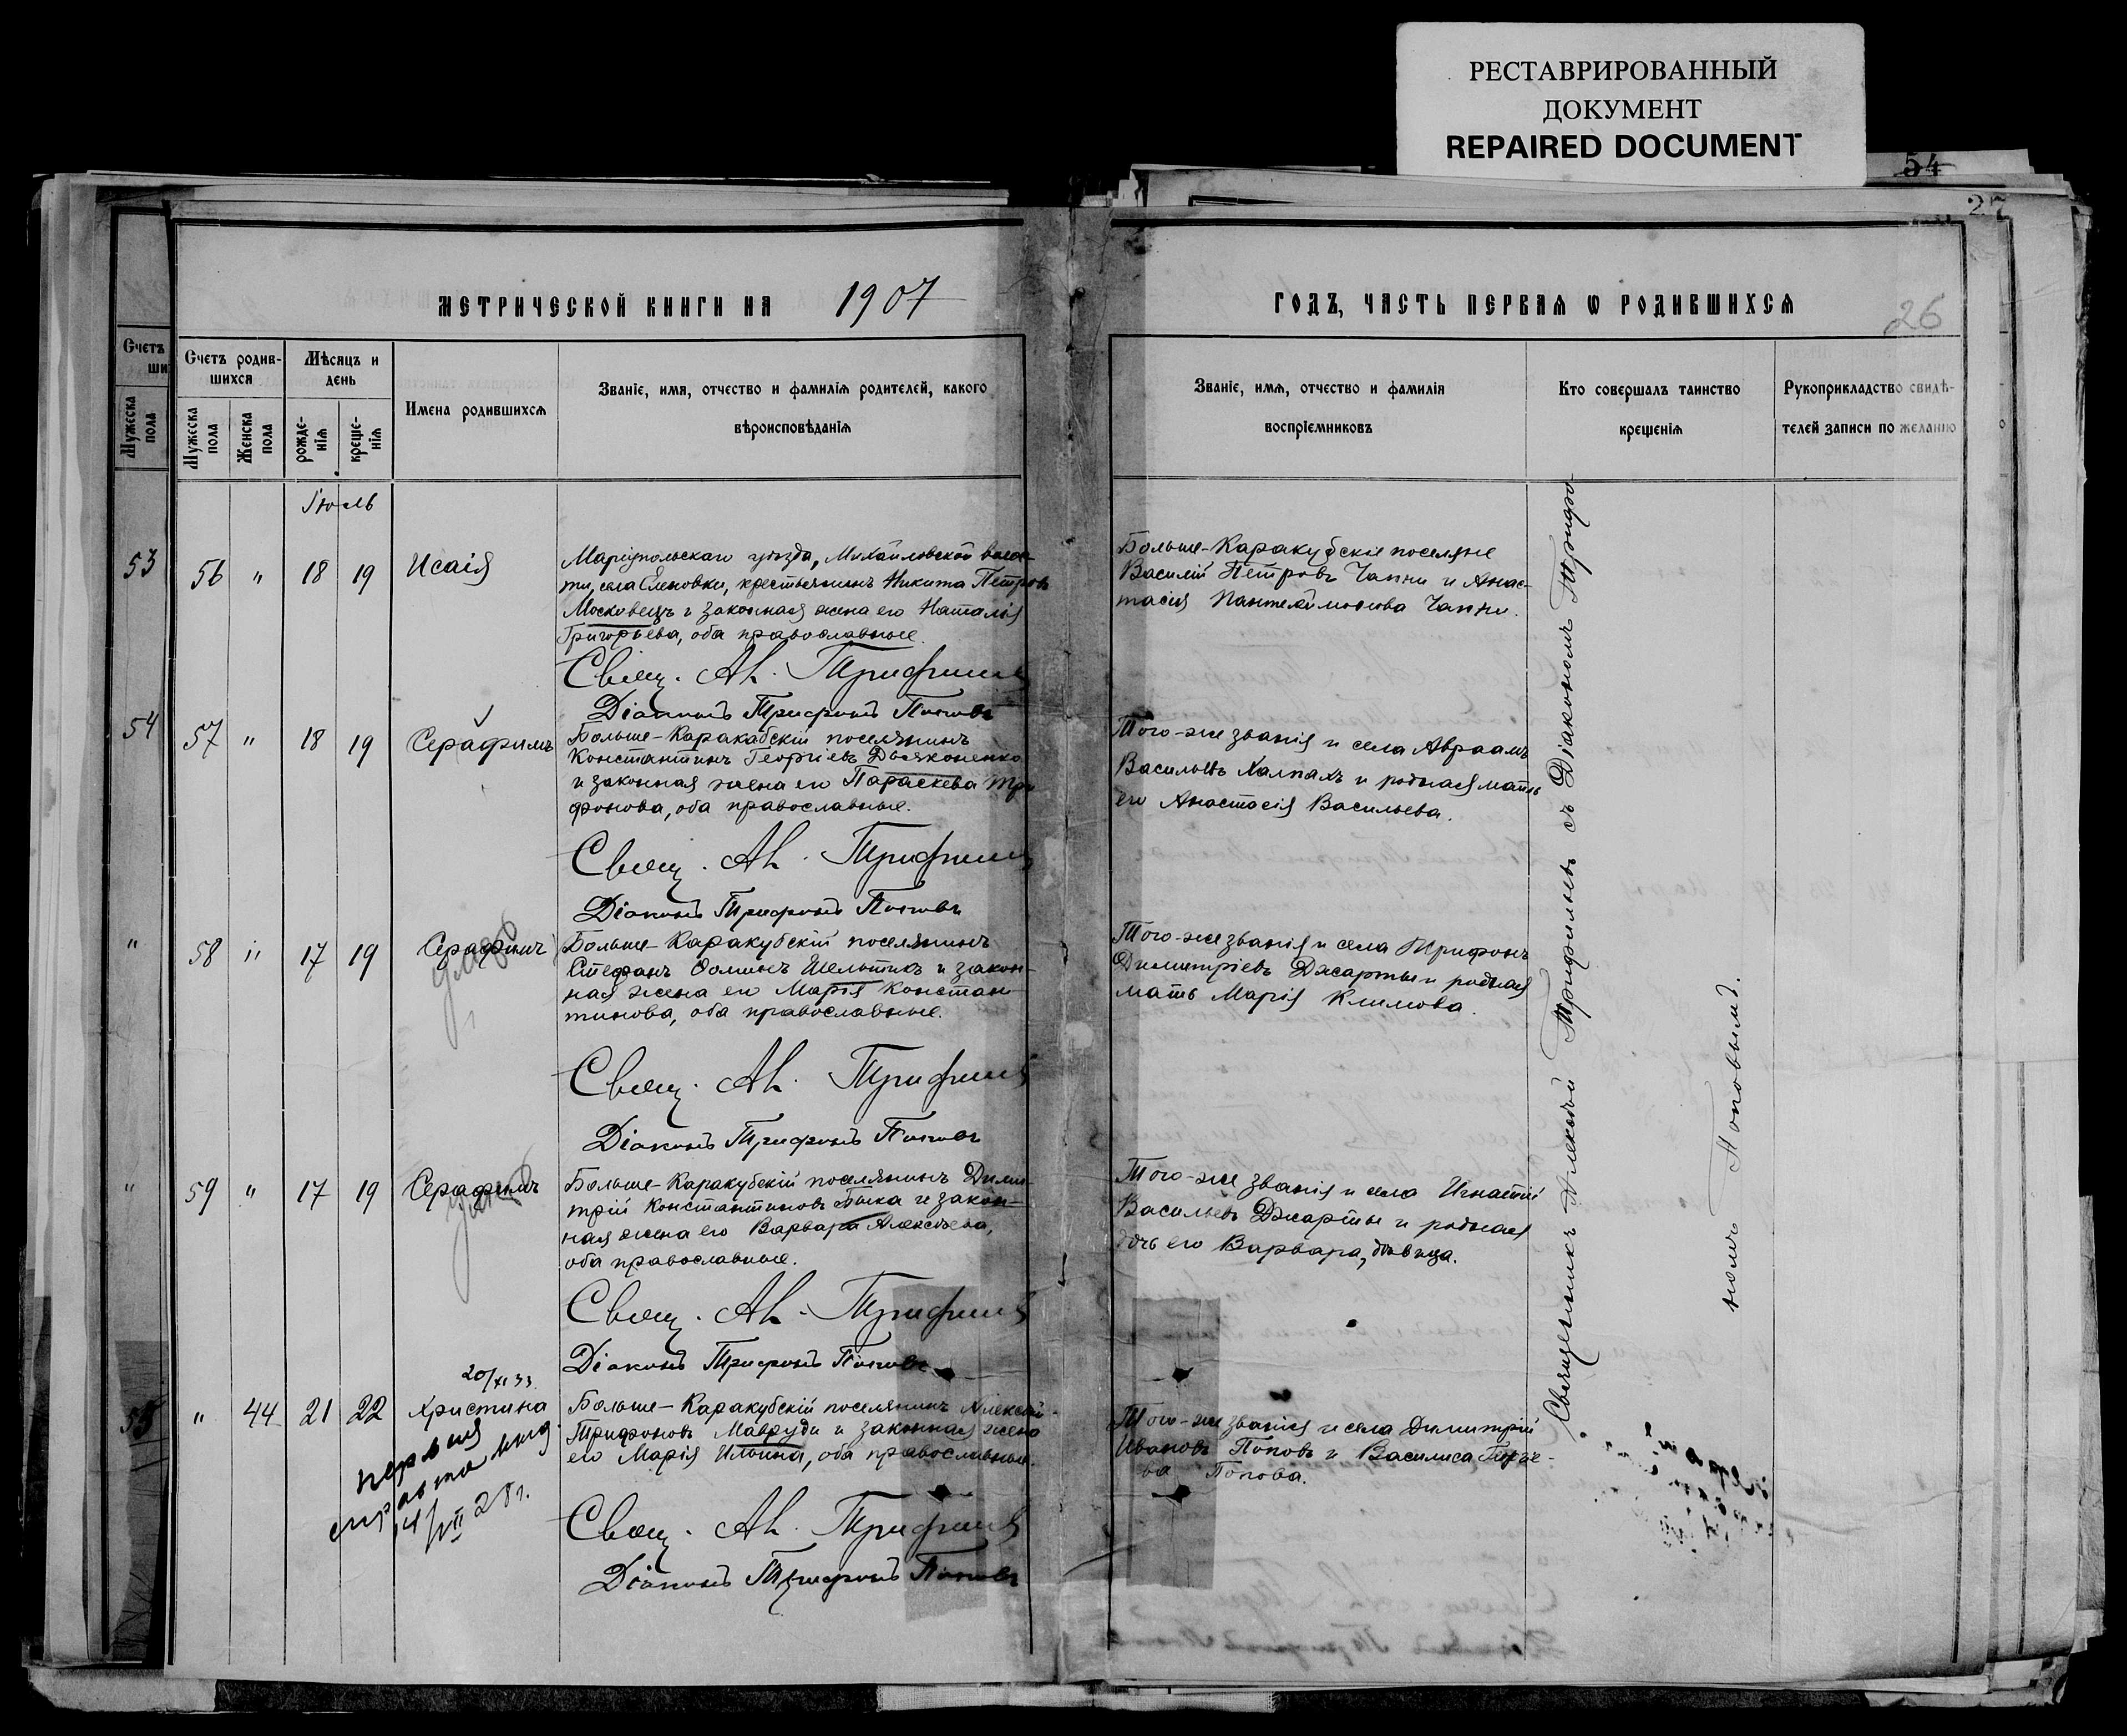 РЕСТАВРИРОВАННЫЙ
ДОКУМЕНТ
REPAIRED DOCUMENT
54
27
26
МЕТРИЧЕСКОЙ КНИГИ НА 1907
ГОДЪ, ЧАСТЬ ПЕРВАЯ Ѡ РОДИВШИХСѦ
Счетъ
ши
Мужеска пола
Счетъ родив-
шихся
Мужеска пола
Женска пола
Мѣсяцъ и
день
рожде-
нія
креще-
нія
Имена родившихсѧ
Званіе, имя, отчество и фамилія родителей, какого
вѣроисповѣданія
Званіе, имя, отчество и фамилія
воспріемниковъ
Кто совершалъ таинство
крещенія
Рукоприкладство свидѣ-
телей записи по желанію
Іюль
53
56 " 18 19 Исаія
Маріупольскаго уѣзда, Михайловской волос-
ти, села Еленовки, крестьянинъ Никита Петровъ
Московецъ и законная жена его Наталія
Григорьева, оба православные.
Свящ. Ал. Трифильевъ
Діаконъ Трифонъ Поповъ
Больше-Каракубскіе поселяне
Василій Петровъ Чапни и Анас-
тасія Пантелеймонова Чапни.
54
57 " 18 19 Серафимъ
Больше-Каракабскій поселянинъ
Константинъ Георгіевъ Дьяконенко
и законная жена его Параскева Три
фонова, оба православные.
Свящ. Ал.
Діаконъ Трифонъ Поповъ
Того-же званія и села Авраамъ
Васильевъ Халпахъ и родная мать
его Анастасія Васильева.
"
58 " 17 19 Серафимъ
умер
Больше-Каракубскій поселянинъ
Стефанъ Ѳоминъ Шельтикъ и закон-
ная жена его Марія Констан-
тинова, оба православные.
Свящ. Ал.
Діаконъ Трифонъ Поповъ
Того-же званія и села Трифонъ
Димитріевъ Джарты и родная
мать Марія Климова.
"
59 " 17 19 Серафимъ
умер
Больше-Каракубскій поселянинъ Дими-
трій Константиновъ Быка и закон-
ная жена его Варвара Алексѣева,
оба православные.
Свящ. Ал.
Діаконъ Трифонъ Поповъ
Того-же званія и села Игнатій
Васильевъ Джарты и родная
дочь его Варвара, дѣвица.
20/XI 33
55
" 44 21 22 Христина
Больше-Каракубскій поселянинъ Алексѣй
Трифоновъ Мавруди и законная жена
его Марія Ильина, оба православные.
Свящ. Ал.
Діаконъ Трифонъ Поповъ
Того-же званія и села Димитрій
Ивановъ Поповъ и Василиса
ва Попова.
28 г.
Священникъ Алексѣй съ Діакономъ Трифо-
номъ Поповымъ.